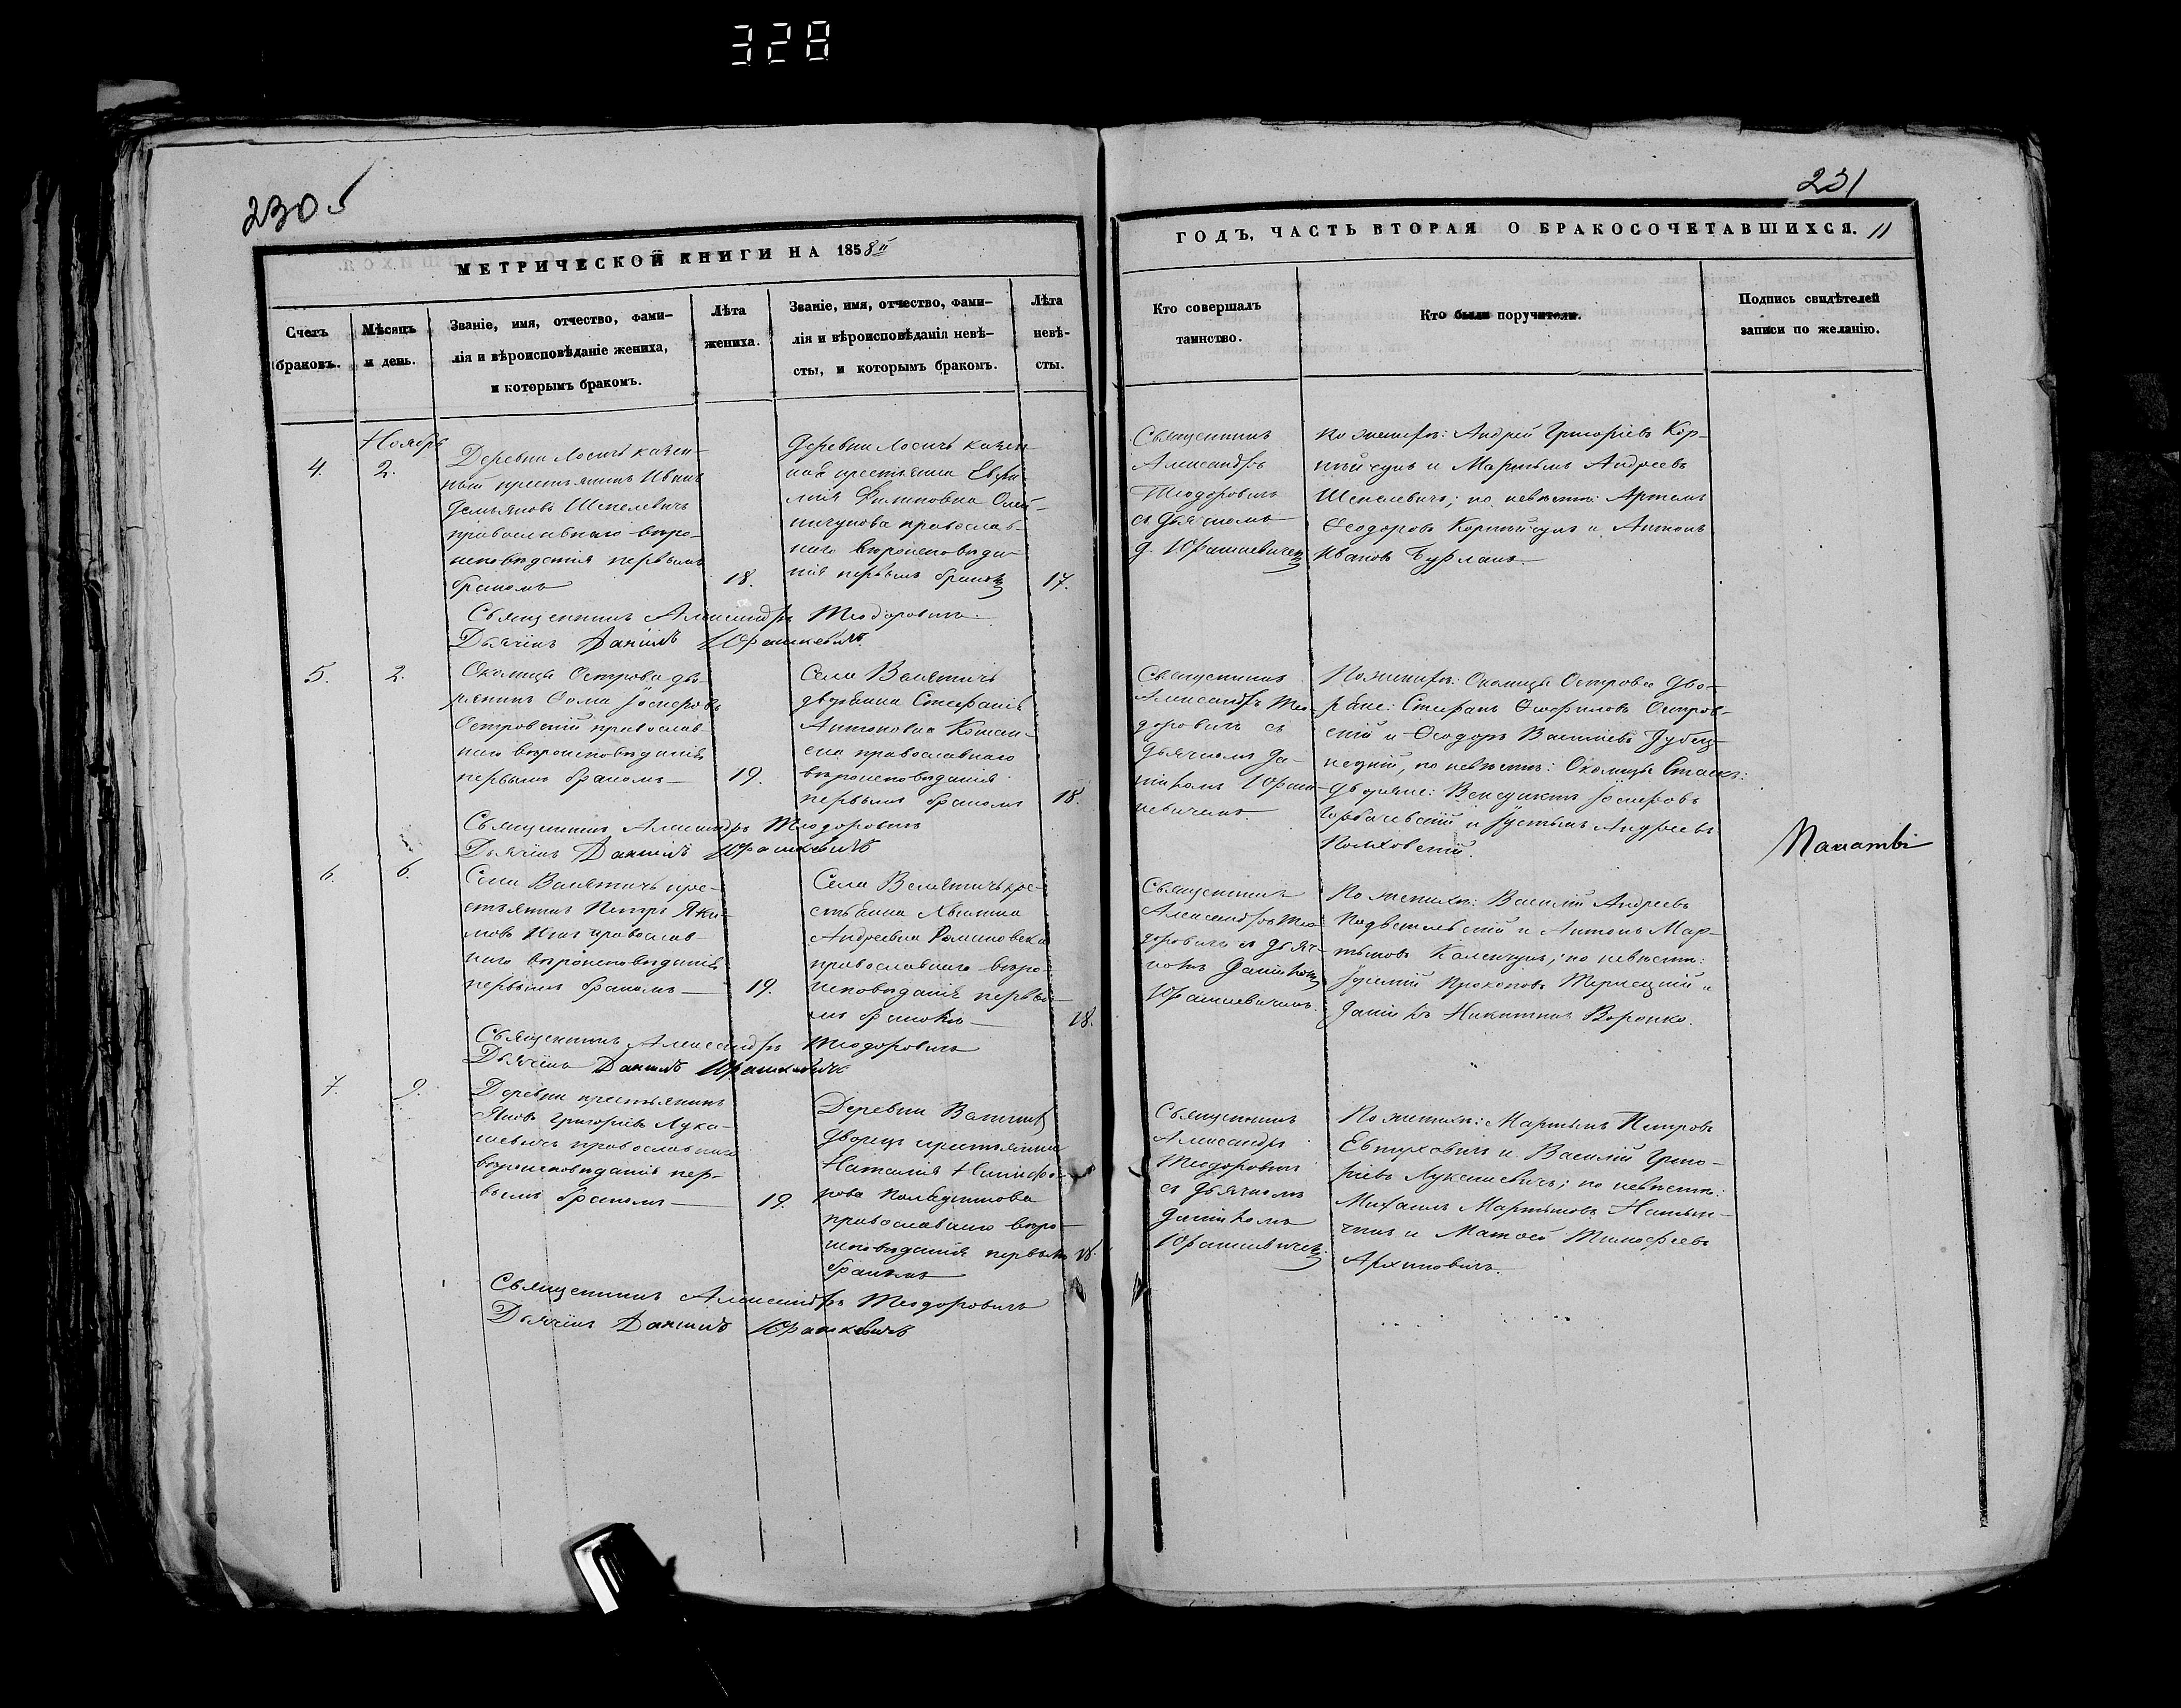 328
230
231
МЕТРИЧЕСКОЙ КНИГИ НА 1858й
ГОДЪ, ЧАСТЬ ВТОРАЯ О БРАКОСОЧЕТАВШИХСЯ. 11
Счетъ браковъ.
Мѣсяцъ и день.
Званіе, имя, отчество, фами-
лія и вѣроисповѣданіе жениха,
и которымъ бракомъ.
Лѣта жениха.
Званіе, имя, отчество, фами-
лія и вѣроисповѣданія невѣ-
сты, и которымъ бракомъ.
Лѣта невѣ-
сты.
Кто совершалъ
таинство.
Кто были поручители.
Подпись свидѣтелей
записи по желанію.
Ноябрь
4. 2.
Деревни Лосичъ казен-
ный крестьянинъ Иванъ
Демьяновъ Шепелевичъ
православнаго вѣро-
исповѣданія первымъ
бракомъ
18.
Деревни Лосичъ казен-
ная крестьянка Евфи-
мія
православ-
наго вѣроисповѣда-
нія первымъ бракомъ
17.
Священникъ
Александръ
Теодоровичъ
съ дьячкомъ
Д. Юрашкевичемъ
По женихѣ: Андрей Григоріевъ Кор-
нѣйчукъ и Мартынъ Андреевъ
Шепелевичъ; по невѣстѣ: Артемъ
Ѳеодоровъ Корнѣйчукъ и Антонъ
Ивановъ Бурлакъ.
Священникъ Александръ Теодоровичъ
Дьячокъ Даніилъ Юрашкевичъ
5. 2.
Околицы Острова дво-
рянинъ Ѳома Іосифовъ
Островскій православ-
наго вѣроисповѣданія
первымъ бракомъ
19.
Села Велятичъ
дворянка Стефанія
Антоновна
православнаго
вѣроисповѣданія
первымъ бракомъ
18.
Священникъ
Александръ Тео-
доровичъ съ
дьячкомъ Да-
ніиломъ Юраш-
кевичемъ.
По женихѣ: Околицы Острова дво-
ряне: Стефанъ Ѳеофиловъ Остров-
скій и Ѳеодоръ Василіевъ
по невѣстѣ: Околицы
Дворяне: Венедиктъ Іосифовъ
Горбачевскій и Іустынъ Андреевъ
Священникъ Александръ Теодоровичъ
Дьячокъ Даніилъ Юрашкевичъ
6. 6.
Села Велятичъ кре-
стьянинъ Петръ Яки-
мовъ православ-
наго вѣроисповѣданія
первымъ бракомъ
19.
Села Велятичъ кре-
стьянка
Андреевна
православнаго вѣро-
исповѣданія первы-
мъ бракомъ
18.
Священникъ
Александръ Тео-
доровичъ съ дьяч-
комъ Даніиломъ
Юрашкевичемъ.
По женихѣ: Василій Андреевъ
и Антонъ Мар-
тыновъ Каленчукъ; по невѣстѣ:
Прокоповъ и
Даніилъ Никитинъ Воронко.
Священникъ Александръ Теодоровичъ
Дьячокъ Даніилъ Юрашкевичъ
7. 9.
Деревни крестьянинъ
Яковъ Григоріевъ Лука-
шевичъ православнаго
вѣроисповѣданія пер-
вымъ бракомъ
19.
Деревни
Дворецъ крестьянка
Наталія Никифо-
рова
православнаго вѣро-
исповѣданія первымъ
бракомъ
18.
Священникъ
Александръ
Теодоровичъ
съ дьячкомъ
Даніиломъ
Юрашкевичемъ.
По женихѣ: Мартынъ Петровъ
Евтуховичъ и Василій Григо-
ріевъ Лукашевичъ; по невѣстѣ:
Михаилъ Мартыновъ
и Матѳей Тимофеевъ
Архиповичъ.
Священникъ Александръ Теодоровичъ
Дьячокъ Даніилъ Юрашкевичъ